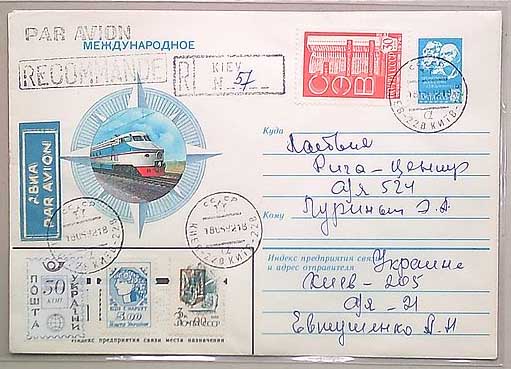 PAR AVION
МЕЖДУНАРОДНОЕ
RECOMMANDÉ
R KIEV
N 57
30
АВИА
PAR AVION
СССР
КИЕВ-228 КИЇВ-228
СССР
18 05 92 18
КИЕВ-228 КИЇВ-228
СССР
18 05 92 18
КИЕВ-228 КИЇВ-228
Куда
Латвия
Рига-Центр
а/я 524
Кому
Индекс предприятия связи
и адрес отправителя
Украина
Киев-205
а/я-21
Евтушенко А.Н
ПОШТА
50
УКРАЇНИ
3.00
Пошта України
ПОЧТА
Индекс предприятия связи места назначения